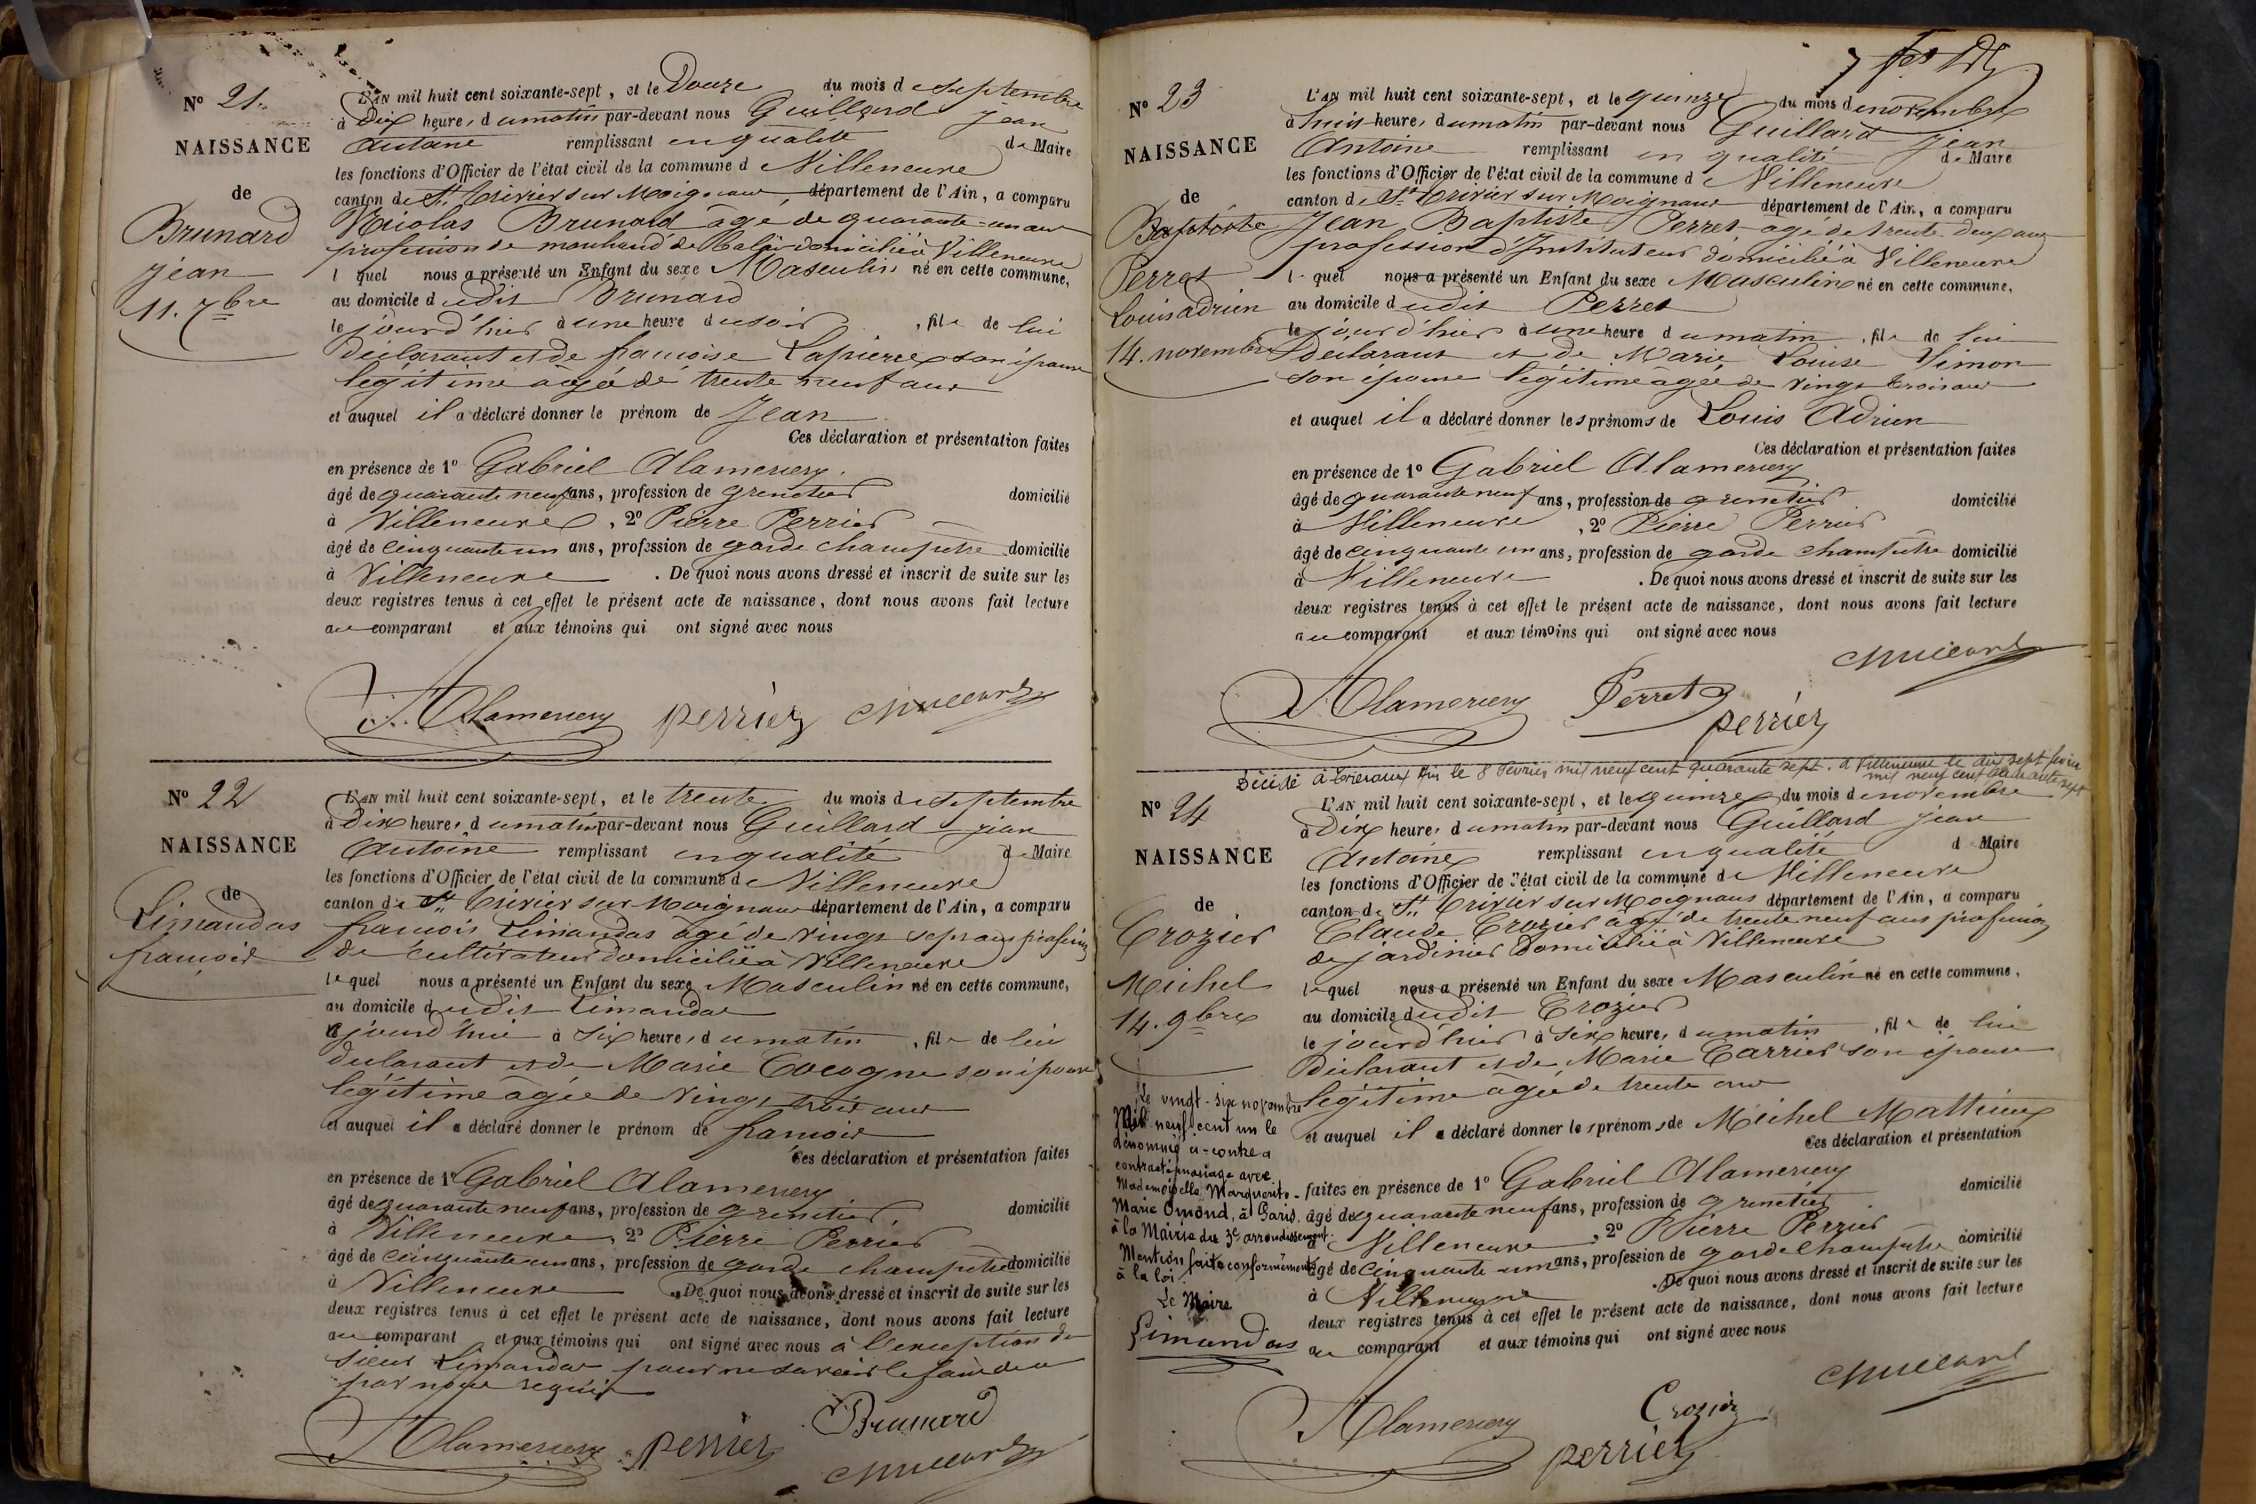 Nº 21.
NAISSANCE
de
Brunard
Jean
11. 7bre
L'AN mil huit cent soixante-sept, et le Douze du mois de septembre
à Dix heures du matin par-devant nous Guillard Jean
Antoine remplissant en qualité de Maire
les fonctions d'Officier de l'état civil de la commune de Villeneuve
canton de St. Trivier sur Moignans, département de l'Ain, a comparu
Nicolas Brunard âgé de quarante-un ans
profession de marchand de domicilié à Villeneuve
lequel nous a présenté un Enfant du sexe Masculin né en cette commune,
au domicile dudit Brunard
le jourd'hier à une heure du soir, fils de lui
déclarant et de françoise Lapierre son épouse
légitime âgée de trente neuf ans
et auquel il a déclaré donner le prénom de Jean
Ces déclaration et présentation faites
en présence de 1º Gabriel Alamercery,
âgé de quarante neuf ans, profession de grenetier domicilié
à Villeneuve, 2º Pierre Perrier
âgé de cinquante un ans, profession de garde champêtre domicilié
à Villeneuve. De quoi nous avons dressé et inscrit de suite sur les
deux registres tenus à cet effet le présent acte de naissance, dont nous avons fait lecture
au comparant et aux témoins qui ont signé avec nous
Alamercery perrier Guillard
Nº 22
NAISSANCE
de
Limandas
françois
L'AN mil huit cent soixante-sept, et le trente du mois de septembre
à Dix heures du matin par-devant nous Guillard jean
Antoine remplissant en qualité de Maire
les fonctions d'Officier de l'état civil de la commune de Villeneuve
canton de St Trivier sur Moignans département de l'Ain, a comparu
françois Limandas âgé de vingt sept ans profession
de cultivateur domicilié à Villeneuve
lequel nous a présenté un Enfant du sexe Masculin né en cette commune,
au domicile dudit Limandas
cejourd'hui à six heures du matin, fils de lui
déclarant et de Marie Cocogne son épouse
légitime âgée de vingt trois ans
et auquel il a déclaré donner le prénom de françois
Ces déclaration et présentation faites
en présence de 1º Gabriel Alamercery
âgé de quarante neuf ans, profession de grenetier domicilié
à Villeneuve, 2º Pierre Perrier
âgé de cinquante un ans, profession de garde champêtre domicilié
à Villeneuve. De quoi nous avons dressé et inscrit de suite sur les
deux registres tenus à cet effet le présent acte de naissance, dont nous avons fait lecture
au comparant et aux témoins qui ont signé avec nous à l'exception du
sieur Limandas pour ne savoir le faire de ce
par nous requis
Brunard
Alamercery perrier Guillard
Nº 23
NAISSANCE
de
Baptiste
Perret
Louis adrien
14. novembre
L'AN mil huit cent soixante-sept, et le quinze du mois de novembre
à huit heures du matin par-devant nous Guillard Jean
Antoine remplissant en qualité de Maire
les fonctions d'Officier de l'état civil de la commune de Villeneuve
canton de St Trivier sur Moignans département de l'Ain, a comparu
Jean Baptiste Perret âgé de trente deux ans
profession d'Instituteur domicilié à Villeneuve
lequel nous a présenté un Enfant du sexe Masculin né en cette commune,
au domicile dudit Perret
le jourd'hier à une heure du matin, fils de lui
déclarant et de Marie Louise Simon
son épouse légitime âgée de vingt trois ans
et auquel il a déclaré donner les prénoms de Louis Adrien
Ces déclaration et présentation faites
en présence de 1º Gabriel Alamercery
âgé de quarante neuf ans, profession de grenetier domicilié
à Villeneuve, 2º Pierre Perrier
âgé de cinquante un ans, profession de garde champêtre domicilié
à Villeneuve. De quoi nous avons dressé et inscrit de suite sur les
deux registres tenus à cet effet le présent acte de naissance, dont nous avons fait lecture
au comparant et aux témoins qui ont signé avec nous
Guillard
Alamercery Perret
perrier
Décédé à Ain le 8 Février mil neuf cent quarante sept. A Villeneuve le dix sept février
mil neuf cent quarante sept
Nº 24
NAISSANCE
de
Crozier
Michel
14. 9bre
L'AN mil huit cent soixante-sept, et le quinze du mois de novembre
à Dix heures du matin par-devant nous Guillard Jean
Antoine remplissant en qualité de Maire
les fonctions d'Officier de l'état civil de la commune de Villeneuve
canton de St Trivier sur Moignans département de l'Ain, a comparu
Claude Crozier âgé de trente neuf ans profession
de jardinier domicilié à Villeneuve
lequel nous a présenté un Enfant du sexe Masculin né en cette commune,
au domicile dudit Crozier
le jourd'hier à six heures du matin, fils de lui
déclarant et de Marie Carrier son épouse
légitime âgée de trente ans
et auquel il a déclaré donner les prénoms de Michel Matthieu
Ces déclaration et présentation
faites en présence de 1º Gabriel Alamercery domicilié
âgé de quarante neuf ans, profession de grenetier
à Villeneuve, 2º Pierre Perrier
âgé de cinquante un ans, profession de garde champêtre domicilié
à Villeneuve. De quoi nous avons dressé et inscrit de suite sur les
deux registres tenus à cet effet le présent acte de naissance, dont nous avons fait lecture
au comparant et aux témoins qui ont signé avec nous
Le vingt-six novembre
Mil neuf cent un le
dénommé ci-contre a
contracté mariage avec
Mademoiselle Marguerite-
Marie Omond, à Paris,
à la Mairie du 3e arrondissement.
Mention faite conformément
à la loi.
Le Maire
Limandas
Guillard
Alamercery Crozier
perrier